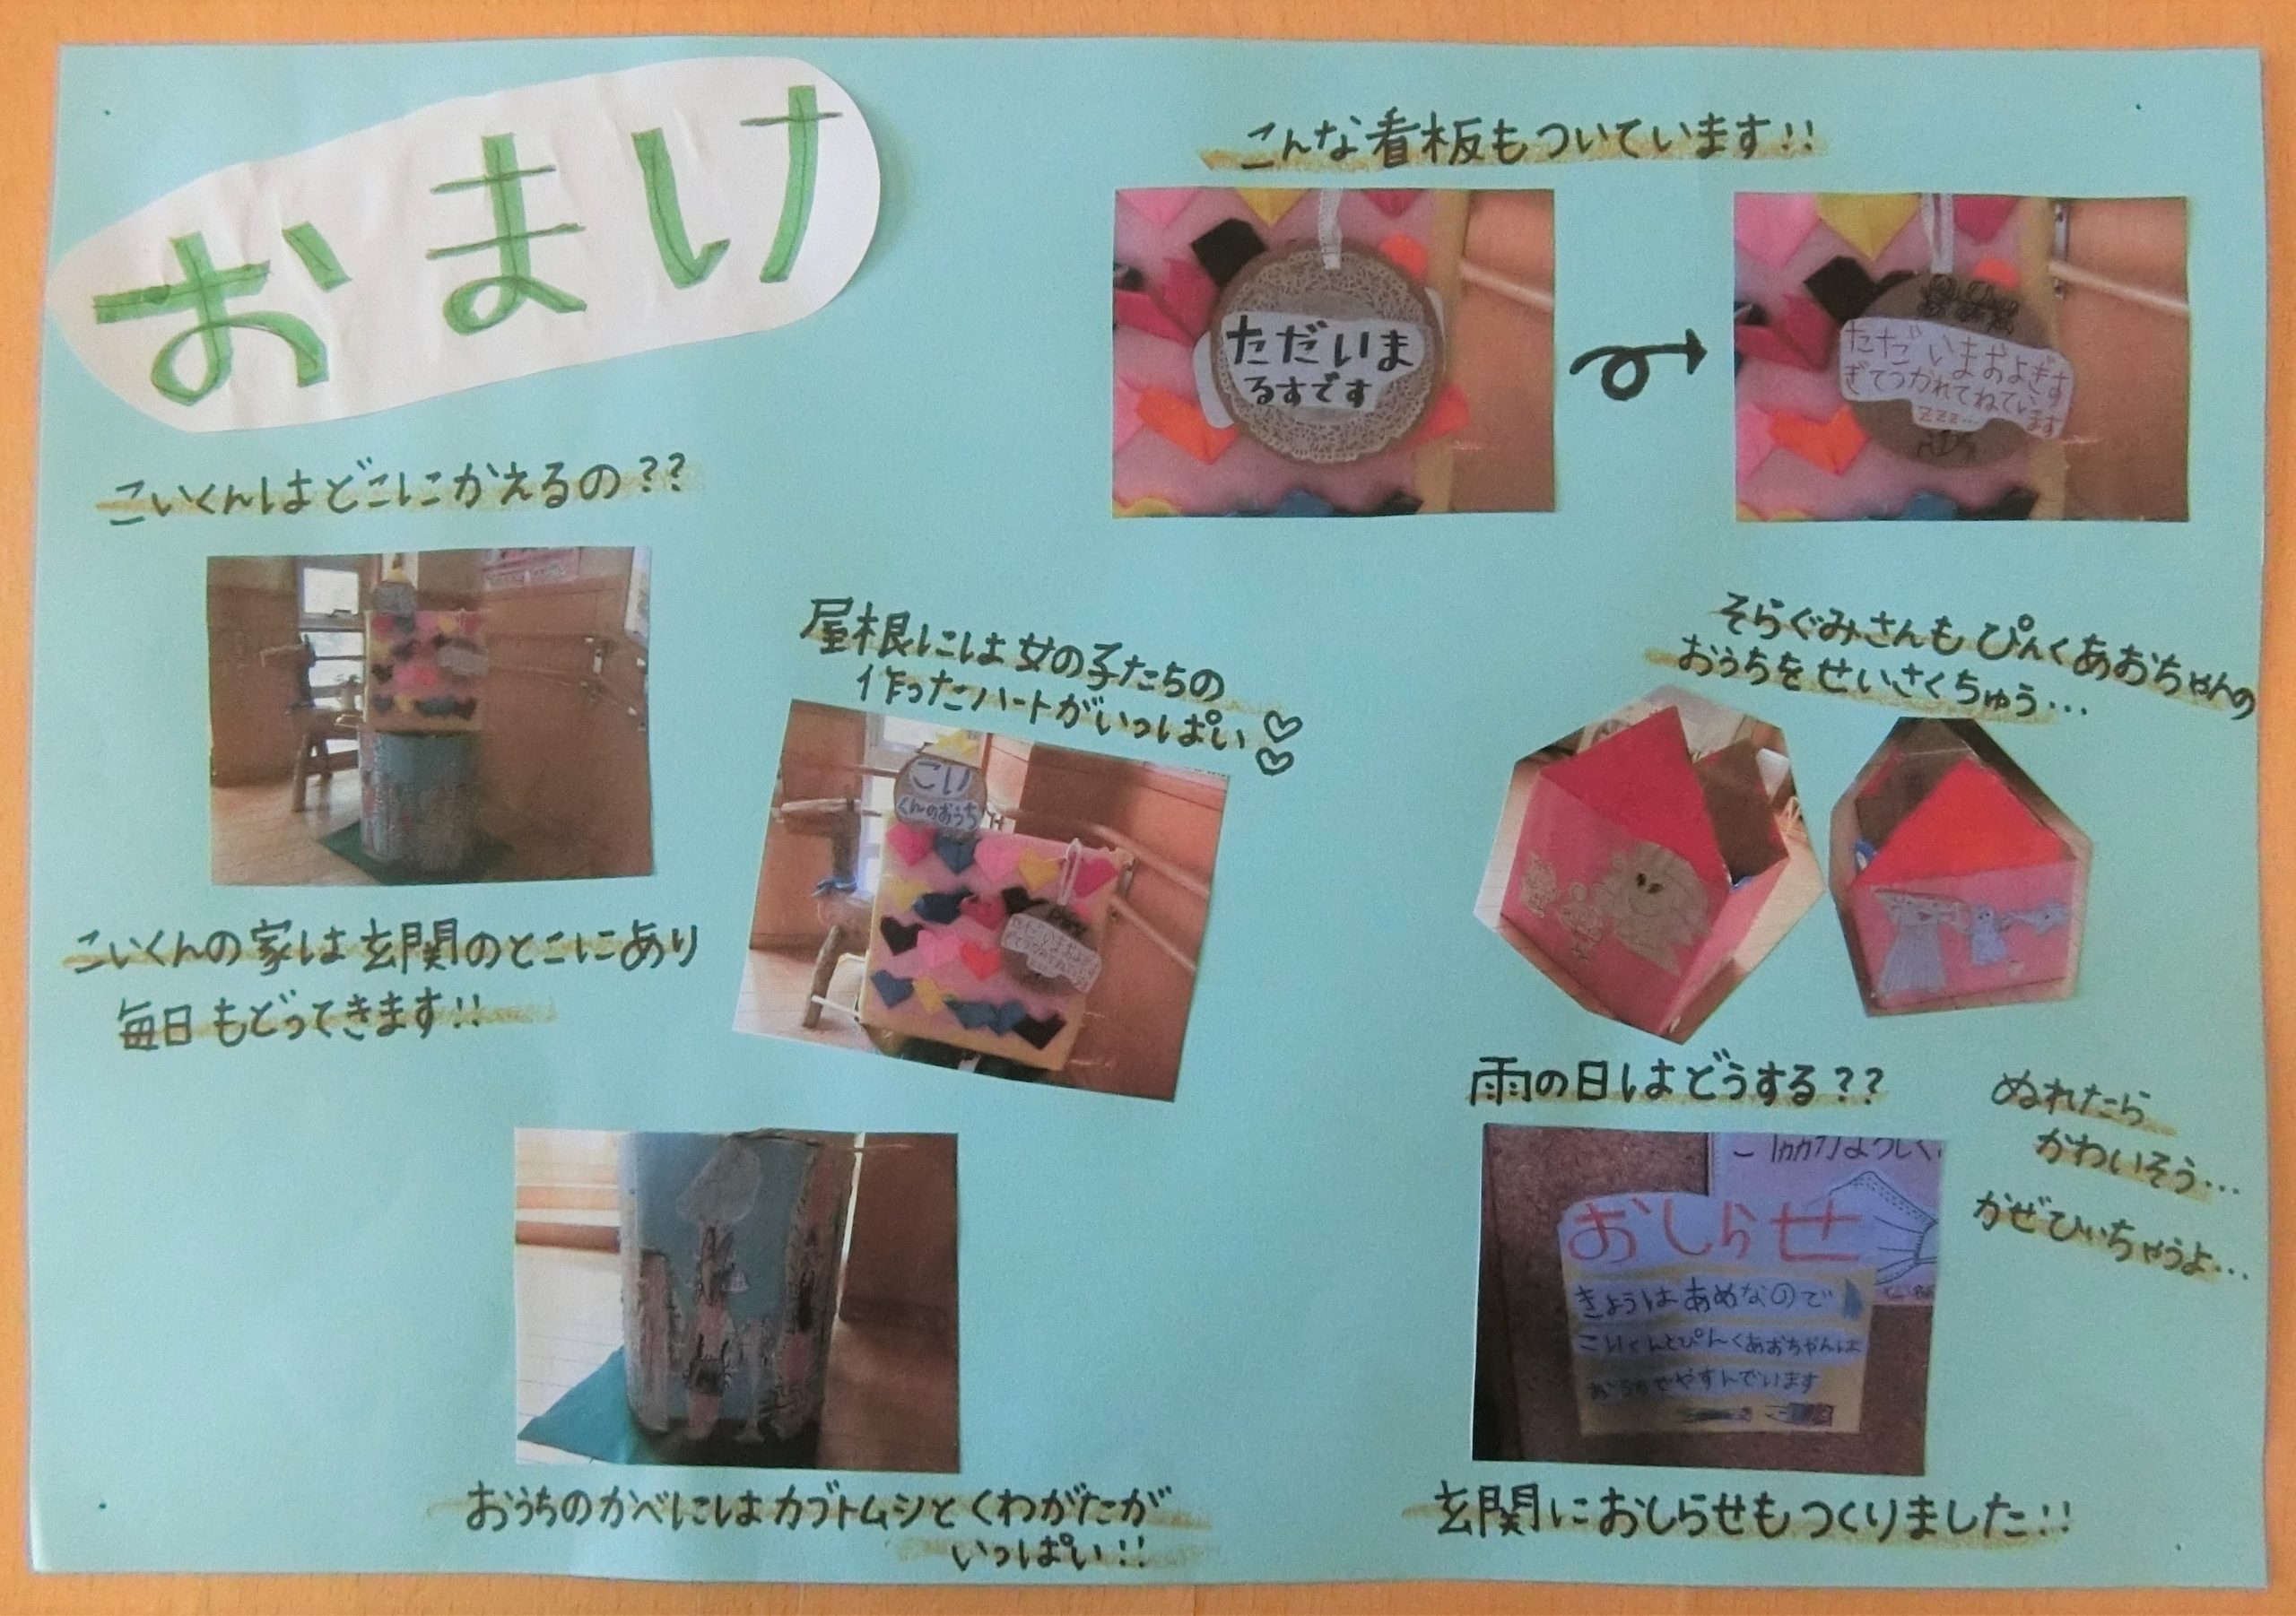 おまけ
こいくんはどこにかえるの??
こいくんの家は玄関のとこにあり
毎日もどってきます!!
屋根には女の子たちの
作ったハートがいっぱい♡
♡
こい
くんのおうち
おうちのかべにはカブトムシとくわがたが
いっぱい!!
こんな看板もついています!!
ただいま
るすです
ただいまおよぎす
ぎてつかれてねています
zzz...
そらぐみさんもぴんくあおちゃんの
おうちをせいさくちゅう...
雨の日はどうする??
ぬれたら
かわいそう...
かぜひいちゃうよ...
おしらせ
きょうはあめなので
こいくんとぴんくあおちゃんは
おうちでやすんでいます
玄関におしらせもつくりました!!